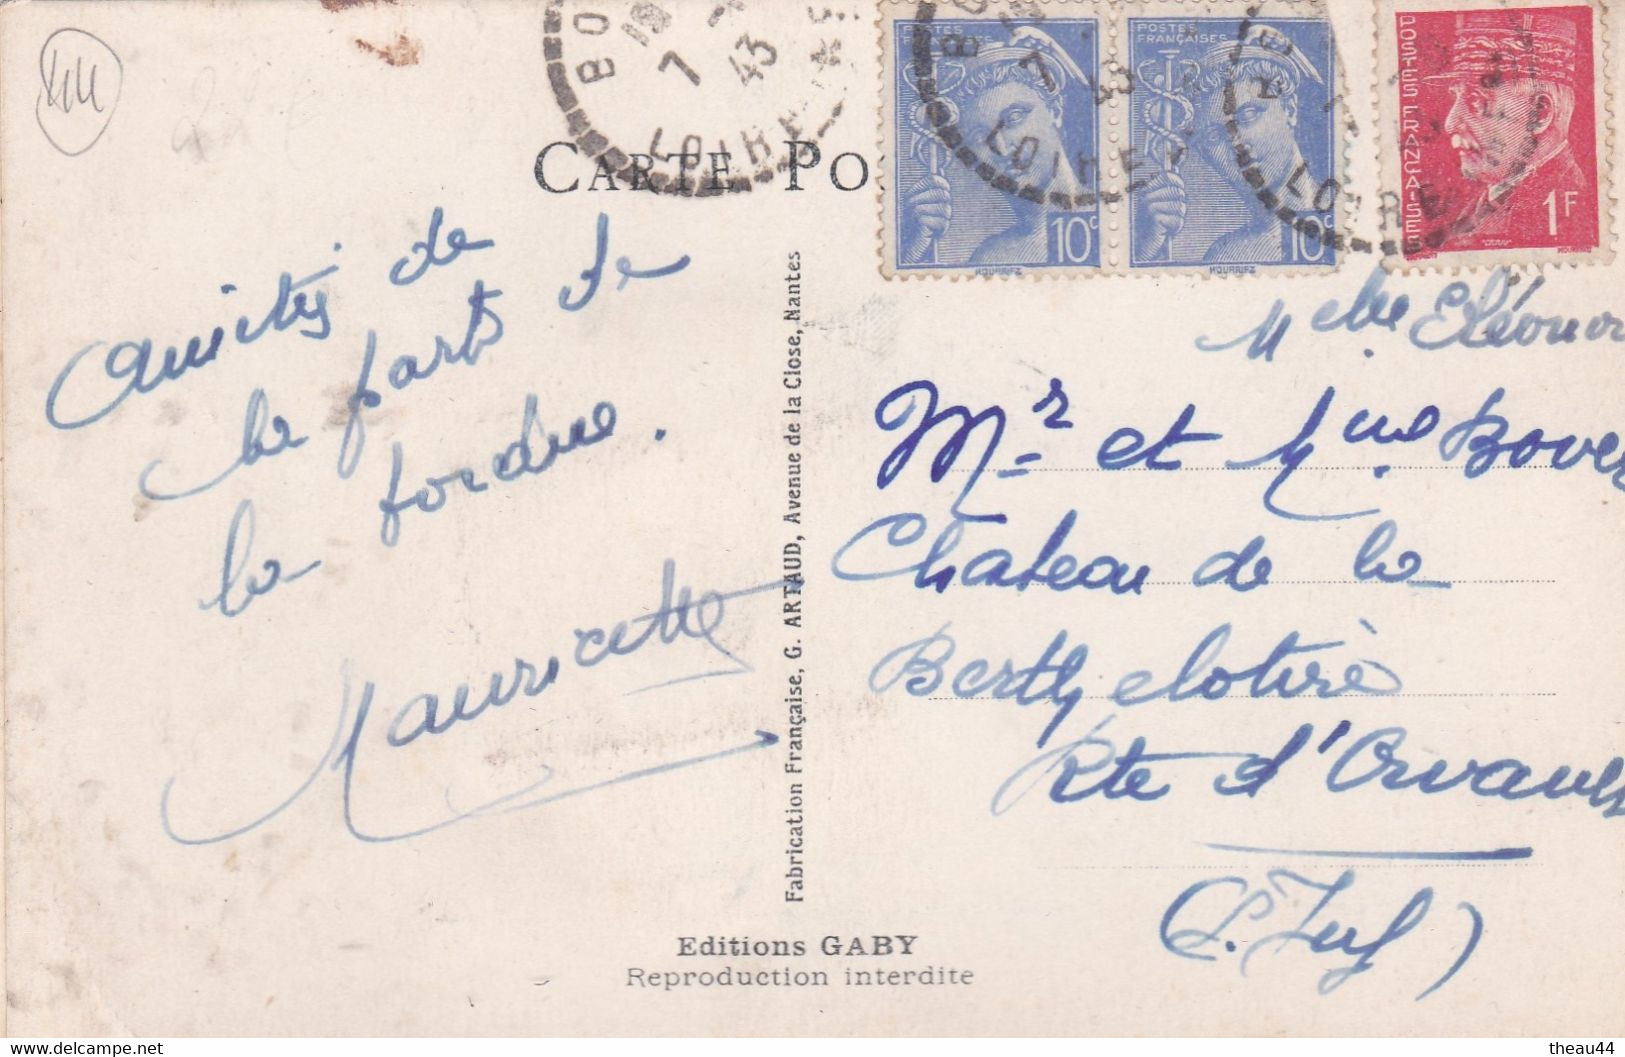 44
CARTE POS
BO
19
7
43
LOIRE
POSTES FRANÇAISES
10c
MOURRIEZ
POSTES FRANÇAISES
10c
MOURRIEZ
POSTES FRANÇAISES
1F
LOIRE
LOIRE
amitiés de
la part de
la
Mauricette
Fabrication Française, G. ARTAUD, Avenue de la Close, Nantes
Melle Eléonor
Mr et Mme Bover
Chateau de la
Berthelotière
Rte d'Orvault
(L. Inf)
Editions GABY
Reproduction interdite
www.delcampe.net
theau44